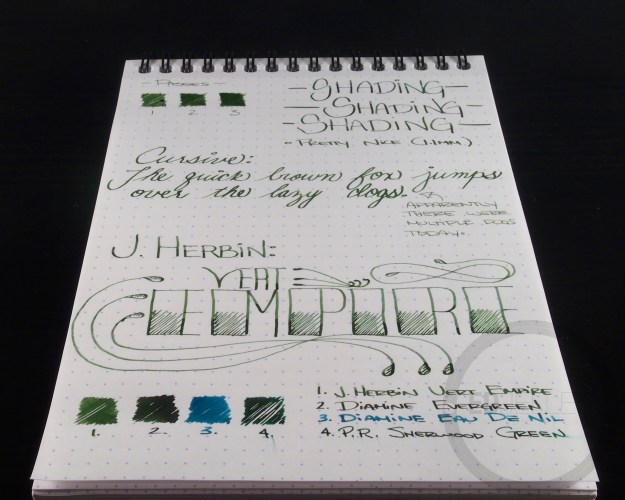 - Passes -
1 2 3
- Shading -
- Shading -
- Shading -
- Pretty Nice (1.1mm)
Cursive:
The quick brown fox jumps
over the lazy dogs.
Apparently
there were
multiple dogs
today.
J. Herbin:
Vert
Empire
1. 2. 3. 4.
1. J. Herbin Vert Empire
2. Diamine Evergreen
3. Diamine Eau De Nil
4. P.R. Sherwood Green